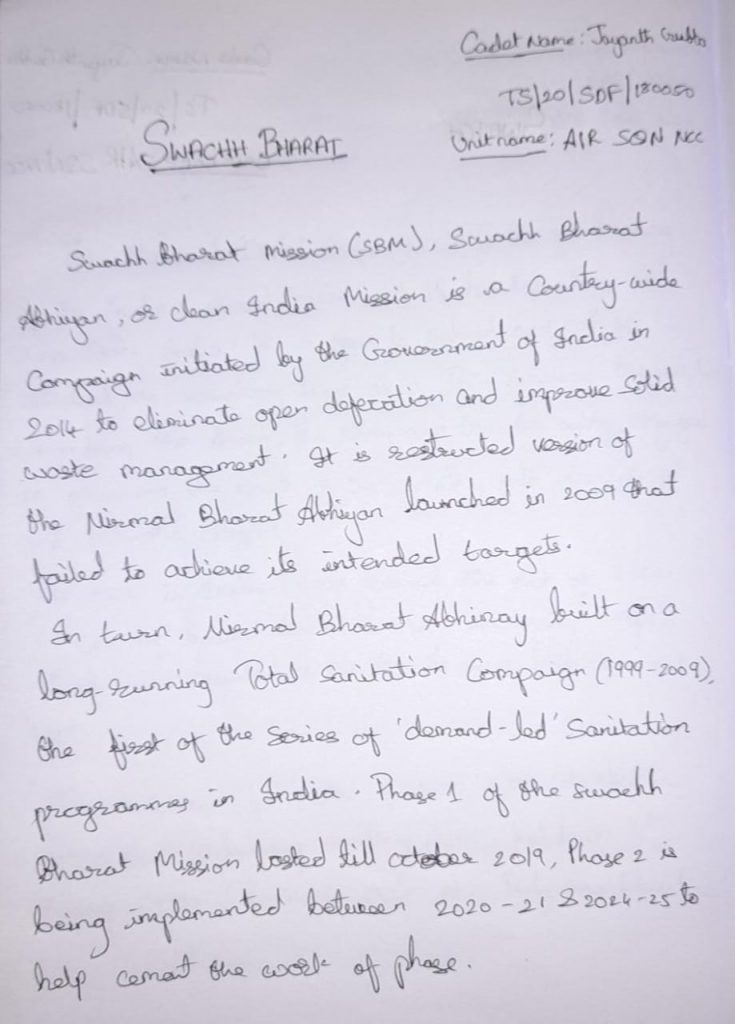 Cadet Name: Jayanth
TS/20/SDF/180050
SWACHH BHARAT
Unit name: AIR SQN NCC
Swachh Bharat Mission (SBM), Swachh Bharat
Abhiyan, or clean India Mission is a Country-wide
Compaign initiated by the Government of India in
2014 to eliminate open defecation and improve Solid
waste management. It is restructed version of
the Nirmal Bharat Abhiyan launched in 2009 that
failed to achieve its intended targets.
In turn, Nirmal Bharat Abhinay built on a
long-running Total Sanitation Compaign (1999-2009),
the first of the series of 'demand-led' Sanitation
programmes in India. Phase 1 of the swachh
Bharat Mission lasted till october 2019, Phase 2 is
being implemented between 2020-21 & 2024-25 to
help cement the work of phase.